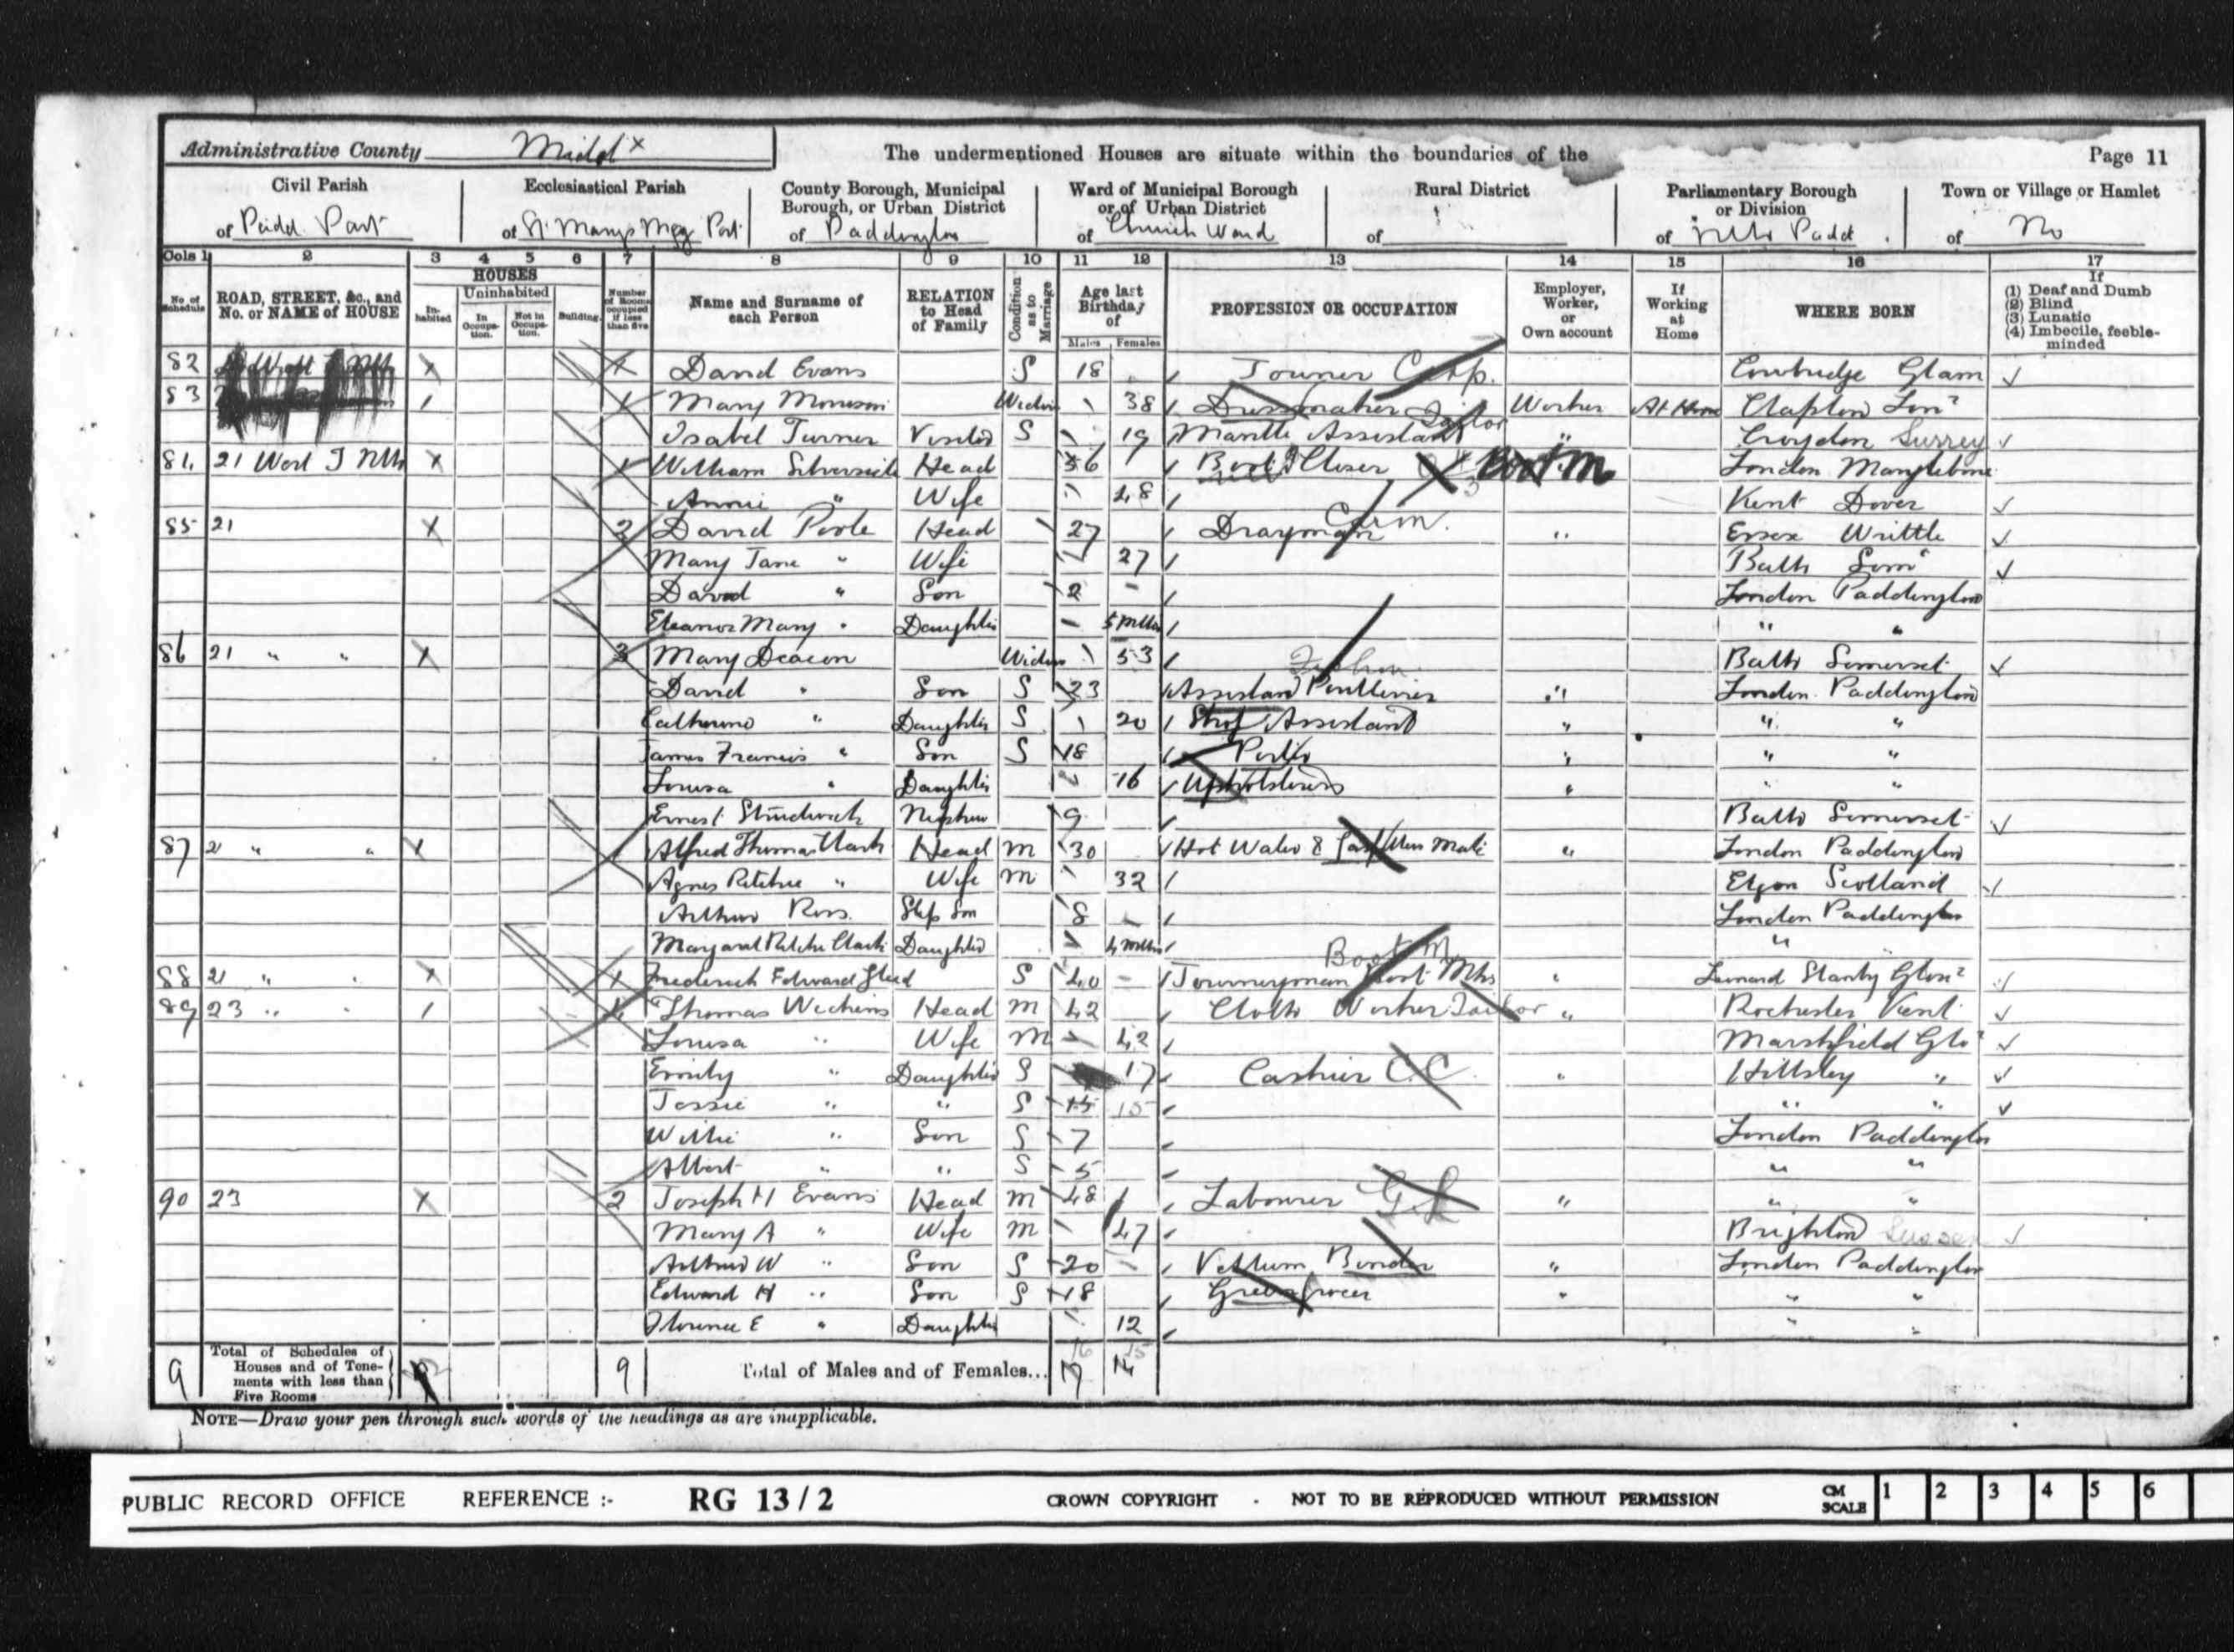 Administrative County Middx
The undermentioned Houses are situate within the boundaries of the
Page 11
Civil Parish
of Padd Part
Ecclesiastical Parish
of St Marys Mag Part
County Borough, Municipal Borough, or Urban District
of Paddington
Ward of Municipal Borough or of Urban District
of Church Ward
Rural District
of
Parliamentary Borough or Division
of Padd
Town or Village or Hamlet
of No
Cols 1 2 3 4 5 6 7 8 9 10 11 12 13 14 15 16 17
No. of Schedule
ROAD, STREET, &c., and No. or NAME of HOUSE
HOUSES
In-habited
Uninhabited
In Occupa-tion.
Not in Occupa-tion.
Building.
Number of Rooms occupied if less than five
Name and Surname of each Person
RELATION to Head of Family
Condition as to Marriage
Age last Birthday of
Males Females
PROFESSION OR OCCUPATION
Employer, Worker, or Own account
If Working at Home
WHERE BORN
If
(1) Deaf and Dumb
(2) Blind
(3) Lunatic
(4) Imbecile, feeble-minded
82 David Evans S 18 Carp. Cowbridge Glam
83 Mary Widow 38 Dressmaker Tailor Worker At Home Clapton Lon
Isabel Turner Visitor S 19 Mantle Assistant " Croydon Surrey
84 21 West William Head 56 Boot Closer Boot M London Marylebone
Annie " Wife 48 Kent Dover
85 21 2 David Poole Head 27 Drayman Carm. " Essex Writtle
Mary Jane " Wife 27 Bath Som
David " Son 2 London Paddington
Eleanor Mary " Daughter 5 Mths " "
86 21 " " 3 Mary Deacon Widow 53 Bath Somerset
David " Son S 23 Assistant " London Paddington
Catherine " Daughter S 20 Shop Assistant " " "
James Francis " Son S 18 Porter " " "
Louisa " Daughter 16 Upholsteress " " "
Ernest Nephew 9 Bath Somerset
87 21 " " Alfred Thomas Clark Head M 30 Hot Water & " London Paddington
Agnes Ritchie " Wife M 32 Elgon Scotland
Arthur Ross Step Son 8 London Paddington
Margaret Ritchie Clark Daughter 4 Mths "
88 21 " " Frederick Edward S 40 Journeyman Boot Mkr Boot M " Leonard Stanley Glos
89 23 " " 4 Thomas Head M 42 Cloth Worker Tailor " Rochester Kent
Louisa " Wife M 42 Marshfield Glo
Emily " Daughter S 17 Cashier C.C. " Hillsley "
Jessie " " S 15 15 " "
Willie " Son S 7 London Paddington
Albert " " S 5 " "
90 23 2 Joseph H Evans Head M 48 Labourer G.L " " "
Mary A " Wife M 47 Brighton Sussex
Arthur W " Son S 20 Vellum Binder " London Paddington
Edward H " Son S 18 Greengrocer " " "
Florence E " Daughter 12 " "
9 Total of Schedules of Houses and of Tene-ments with less than Five Rooms 9 Total of Males and of Females... 16 15 14
NOTE—Draw your pen through such words of the headings as are inapplicable.
PUBLIC RECORD OFFICE REFERENCE :- RG 13/2 CROWN COPYRIGHT - NOT TO BE REPRODUCED WITHOUT PERMISSION CM SCALE 1 2 3 4 5 6